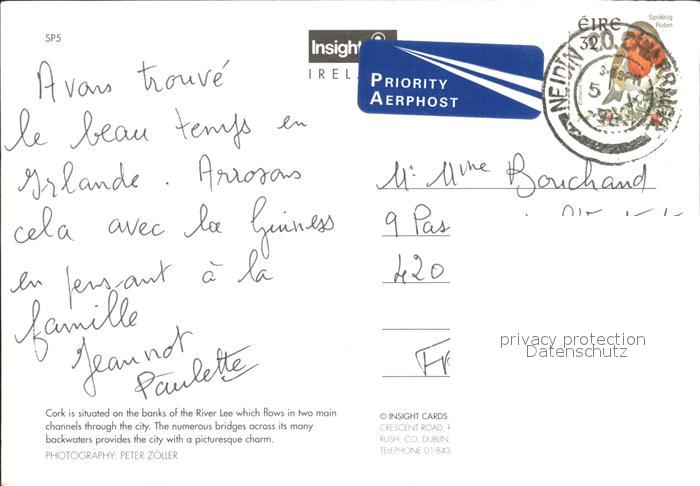 SP5
Insight
IREL
PRIORITY
AERPHOST
ÉIRE
32
Spideog
Robin
Avons trouvé
le beau temps en
Irlande. Arrosons
cela avec la Guiness
en pensant à la
famille
Jeannot
Paulette
Mr Mme Bouchand
9 Pas
420
FR
privacy protection
Datenschutz
Cork is situated on the banks of the River Lee which flows in two main
channels through the city. The numerous bridges across its many
backwaters provides the city with a picturesque charm.
PHOTOGRAPHY: PETER ZÖLLER
© INSIGHT CARDS
CRESCENT ROAD,
RUSH, CO. DUBLIN,
TELEPHONE 01-843